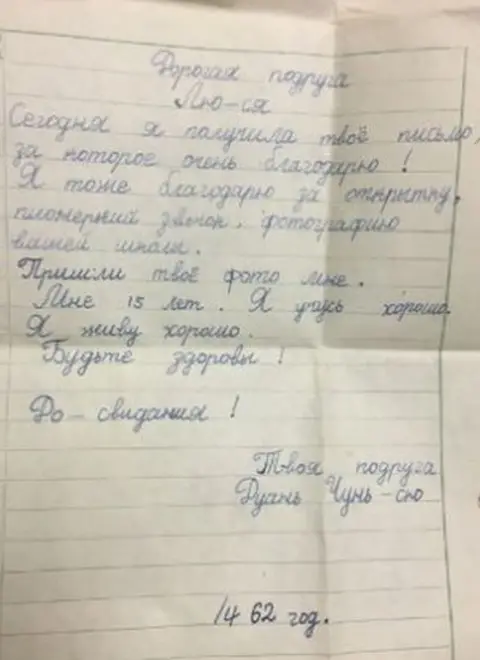 Дорогая подруга
Лю-ся
Сегодня я получила твоё письмо,
за которое очень благодарю!
Я тоже благодарю за открытку,
пионерский звенок, фотографию
вашей школы.
Пришли твоё фото мне.
Мне 15 лет. Я учусь хорошо.
Я живу хорошо.
Будьте здоровы!
До-свидания!
Твоя подруга
Дуань Чунь-сю
14 62 год.